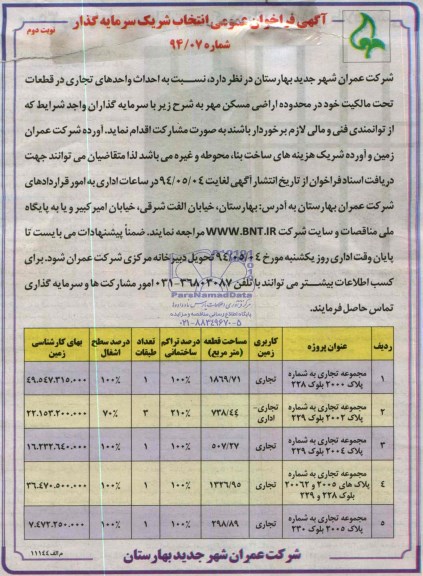 آگهی فراخوان عمومی انتخاب شریک سرمایه گذار
شماره ۹۴/۰۷
نوبت دوم
شرکت عمران شهر جدید بهارستان در نظر دارد، نسبت به احداث واحدهای تجاری در قطعات
تحت مالکیت خود در محدوده اراضی مسکن مهر به شرح زیر با سرمایه گذاران واجد شرایط که
از توانمندی فنی و مالی لازم برخوردار باشند به صورت مشارکت اقدام نماید. آورده شرکت عمران
زمین و آورده شریک هزینه های ساخت بنا، محوطه و غیره می باشد لذا متقاضیان می توانند جهت
دریافت اسناد فراخوان از تاریخ انتشار آگهی لغایت ۹۴/۰۵/۰۴ در ساعات اداری به امور قراردادهای
شرکت عمران بهارستان به آدرس: بهارستان، خیابان الفت شرقی، خیابان امیرکبیر و یا به پایگاه
ملی مناقصات و سایت شرکت WWW.BNT.IR مراجعه نمایند. ضمناً پیشنهادات می بایست تا
پایان وقت اداری روز یکشنبه مورخ ۹۴/۰۵/۰۴ تحویل دبیرخانه مرکزی شرکت عمران شود. برای
کسب اطلاعات بیشتر می توانند با تلفن ۳۶۸۰۳۰۸۷-۰۳۱ امور مشارکت ها و سرمایه گذاری
تماس حاصل فرمایند.
ParsNamadData
پایگاه اطلاع رسانی مناقصه و مزایده
۰۲۱-۸۸۳۴۹۶۷۰-۵
ردیف عنوان پروژه کاربری زمین مساحت قطعه (متر مربع) درصد تراکم ساختمانی تعداد طبقات درصد سطح اشغال بهای کارشناسی زمین
۱ مجموعه تجاری به شماره پلاک ۲۰۰۰ بلوک ۲۲۸ تجاری ۱۸۶۹/۷۱ ۱۰۰٪ ۱ ۱۰۰٪ ۴۹.۵۴۷.۳۱۵.۰۰۰
۲ مجموعه تجاری به شماره پلاک ۲۰۰۲ بلوک ۲۲۹ تجاری-اداری ۷۳۸/۴۴ ۲۱۰٪ ۳ ۷۰٪ ۲۲.۱۵۳.۲۰۰.۰۰۰
۳ مجموعه تجاری به شماره پلاک ۲۰۰۴ بلوک ۲۲۹ تجاری ۵۰۷/۲۷ ۱۰۰٪ ۱ ۱۰۰٪ ۱۶.۲۳۲.۶۴۰.۰۰۰
۴ مجموعه تجاری به شماره پلاک های ۲۰۰۵ و ۲۰۰۶۲ بلوک ۲۲۸ و ۲۲۹ تجاری ۱۳۲۶/۹۵ ۱۰۰٪ ۱ ۱۰۰٪ ۳۶.۴۷۰.۵۰۰.۰۰۰
۵ مجموعه تجاری به شماره پلاک ۲۰۰۵ بلوک ۲۳۰ تجاری ۲۹۸/۸۹ ۱۰۰٪ ۱ ۱۰۰٪ ۷.۴۷۲.۲۵۰.۰۰۰
شرکت عمران شهر جدید بهارستان
م الف ۱۱۱۴۴